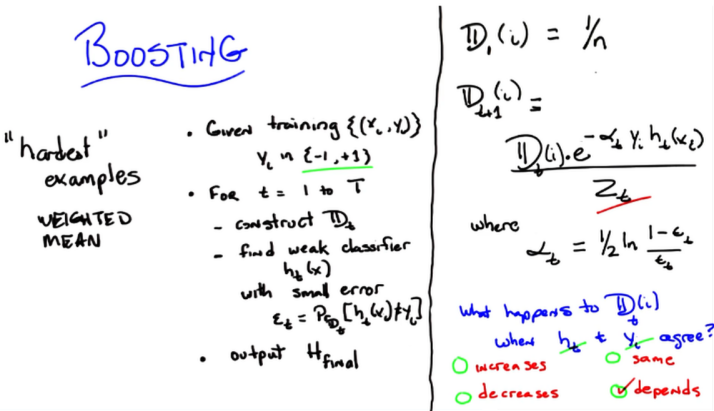 BOOSTING
"hardest"
examples
WEIGHTED
MEAN
• Given training {(x_i, y_i)}
y_i in {-1, +1}
• For t = 1 to T
- construct D_t
- find weak classifier
h_t(x)
with small error
ε_t = P_D_t[h_t(x_i) ≠ y_i]
• output H_final
D_1(i) = 1/n
D_t+1(i) =
D_t(i)·e^(-α_t y_i h_t(x_i))
Z_t
where
α_t = 1/2 ln (1-ε_t)/ε_t
what happens to D_t(i)
when h_t & y_i agree?
increases
same
decreases
depends